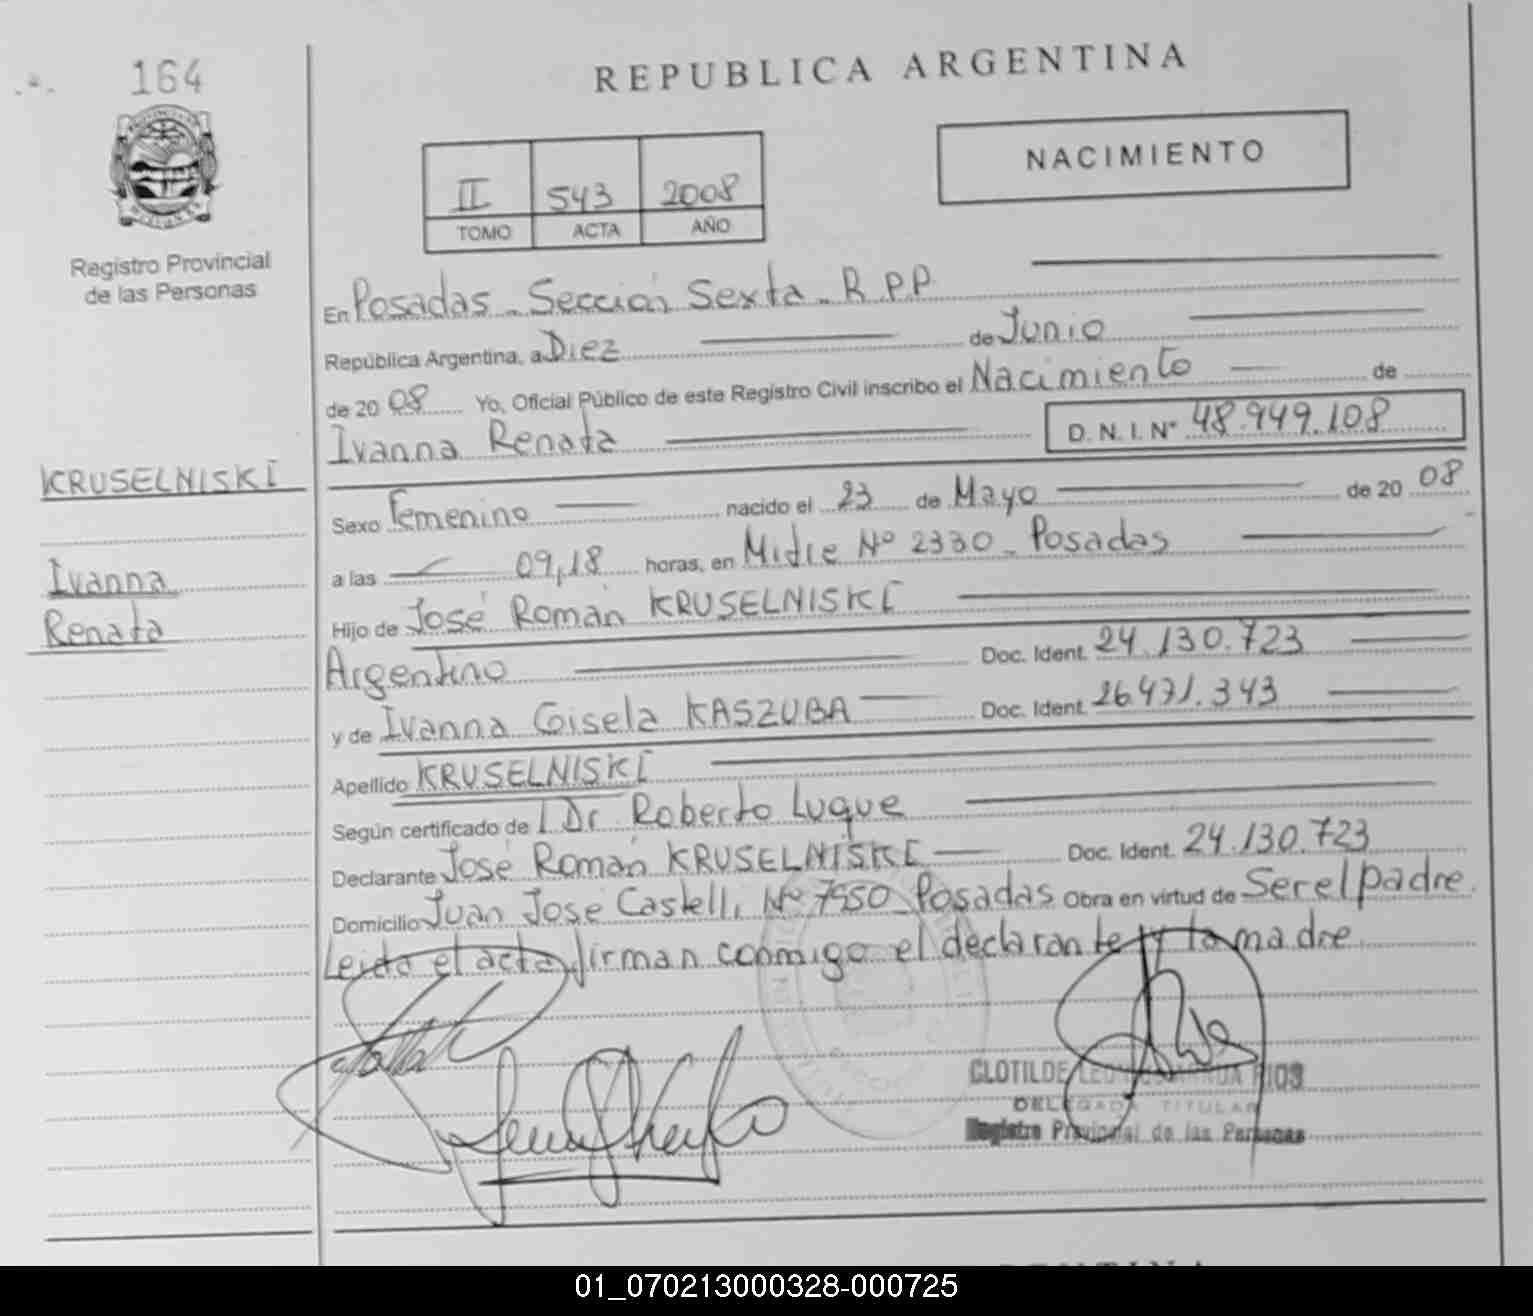 164
REPUBLICA ARGENTINA
NACIMIENTO
II 543 2008
TOMO ACTA AÑO
Registro Provincial
de las Personas
En Posadas - Sección Sexta - R.P.P.
República Argentina, a Diez de Junio
de 2008 Yo, Oficial Público de este Registro Civil inscribo el Nacimiento de
Ivanna Renata D. N. I. Nº 48.949.108
KRUSELNISKI
Sexo Femenino nacido el 23 de Mayo de 2008
Ivanna
a las 09,18 horas, en Mitre Nº 2330 - Posadas
Renata
Hijo de José Román KRUSELNISKI
Argentino Doc. Ident. 24.130.723
y de Ivanna Gisela KASZUBA Doc. Ident. 26.471.343
Apellido KRUSELNISKI
Según certificado de Dr Roberto Luque
Declarante José Román KRUSELNISKI Doc. Ident. 24.130.723
Domicilio Juan José Castelli Nº 7950 Posadas Obra en virtud de Ser el padre.
Leida el acta firman conmigo el declarante y la madre
CLOTILDE RIOS
DELEGADA TITULAR
Registro Provincial de las Personas
01_070213000328-000725